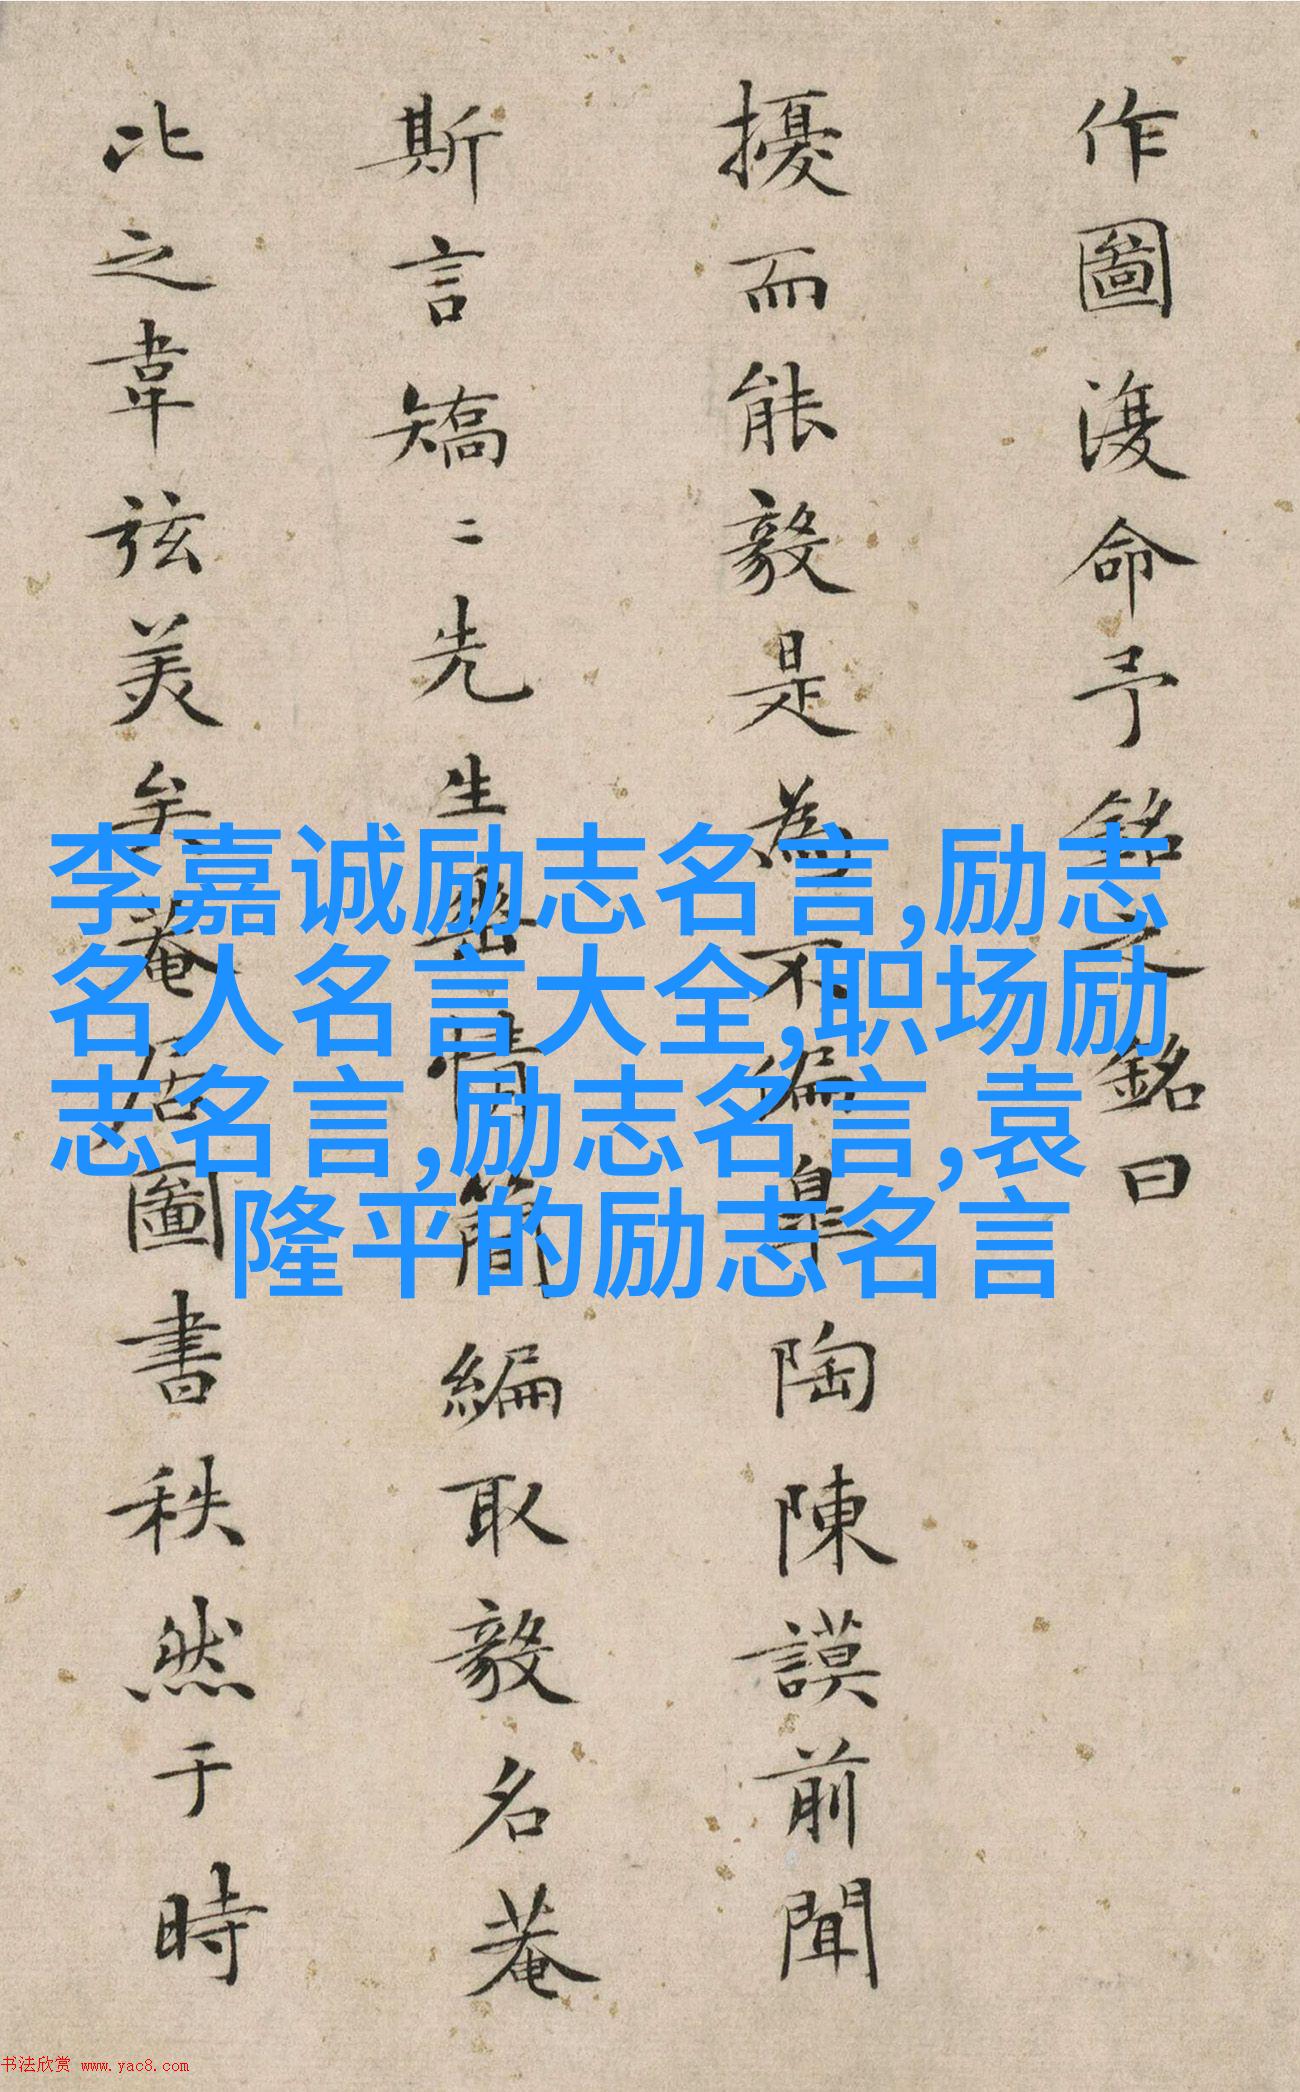 作圖復命予銘之銘曰
擾而能毅是為不偏皐陶陳謨前聞
斯言矯二先生舉情簡編取毅名菴
比之韋弦美矣菴居圖書秩然于時
李嘉诚励志名言,励志
名人名言大全,职场励
志名言,励志名言,袁
隆平的励志名言
书法欣赏 www.yac8.com